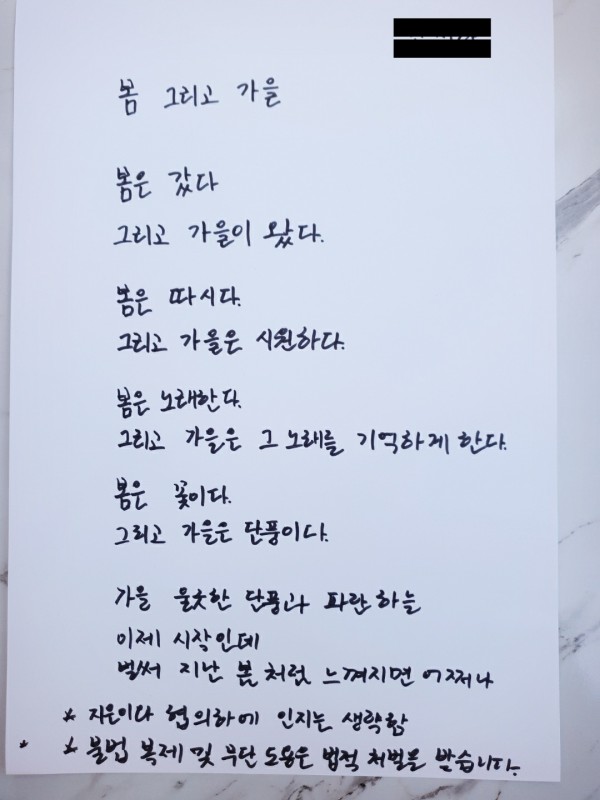 봄 그리고 가을
봄은 갔다
그리고 가을이 왔다.
봄은 따시다.
그리고 가을은 시원하다.
봄은 노래한다.
그리고 가을은 그 노래를 기억하게 한다.
봄은 꽃이다.
그리고 가을은 단풍이다.
가을 울긋한 단풍과 파란 하늘
이제 시작인데
벌써 지난 봄 처럼 느껴지면 어쩌나
* 지은이다 협의하에 인지는 생략함
* 불법 복제 및 무단 도용은 법적 처벌을 받습니다.